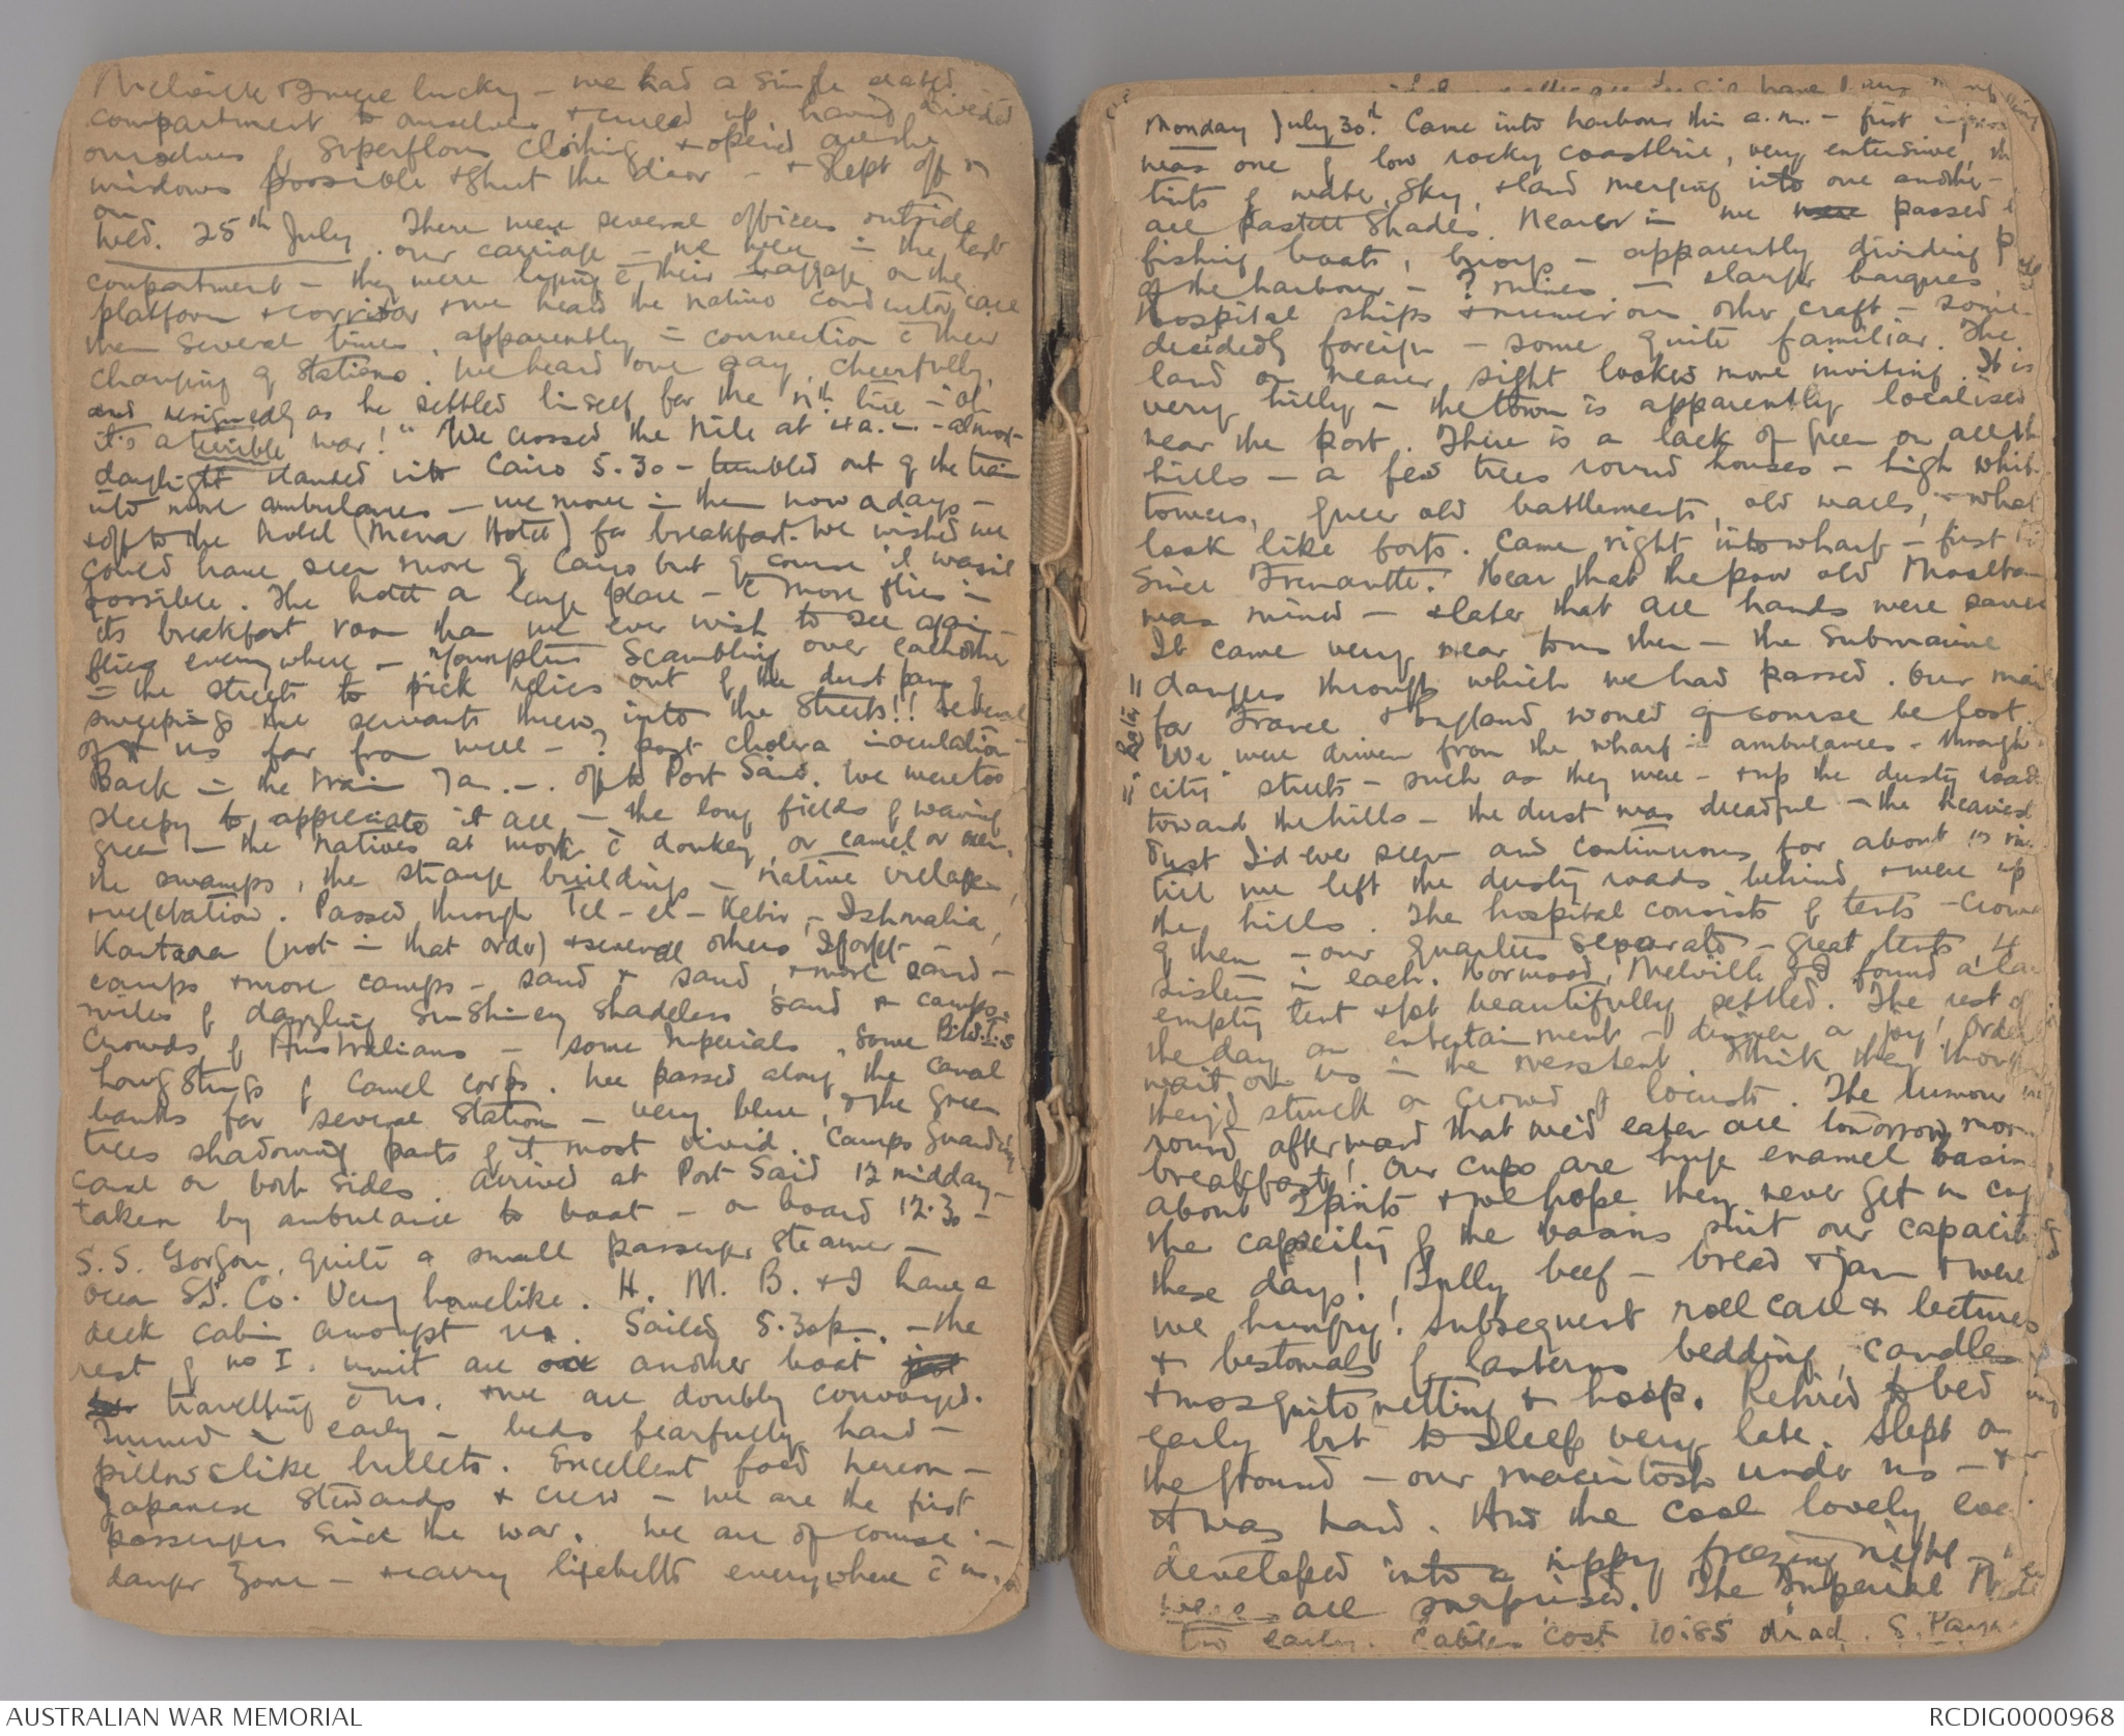 Melville & I were lucky – we had a single seated
compartment to ourselves & curled up, having divested
ourselves of superflous clothing & opened all the
windows possible & shut the door – & slept off &
on
Wed. 25th July. There were several officers outside
our carriage – we were in the last
compartment – they were lying c̄ their baggage on the
platform & corridor & we heard the native conductor call
them several times, apparently in connection c̄ their
changing of stations. We heard one say, cheerfully,
and resignedly as he settled himself for the nth time –
it's a terrible war!" We crossed the Nile at 4 a.m. – almost
daylight & landed into Cairo 5.30 – tumbled out of the train
into more ambulances – we move in them nowadays –
& off to the hotel (Mena Hotel) for breakfast. We wished we
could have seen more of Cairo but of course it wasn't
possible. The hotel a large place – c̄ more flies in
its breakfast room than we ever wish to see again –
flies everywhere – youngsters scrambling over eachother
in the streets to pick relics out of the dust pans of
sweepings the servants threw into the streets!! Several
of us far from well – ? post cholera inoculation
Back in the train 7 a.m. off to Port Said. We were too
sleepy to appreciate it all – the long fields of waving
green – the natives at work c̄ donkey, or camel or oxen,
the swamps, the strange buildings – native villages,
& vegetation. Passed through Tel-el-Kebir, – Ishmalia,
Kantara (not in that order) & several others I forget –
camps & more camps – sand & sand, & more sand –
miles of dazzling sunshiney shadeless sand & camps.
Crowds of Australians – some Imperials, some B.W.I.s
Long strings of camel corps. We passed along the canal
banks for several stations – very blue, & the green
trees shadowing parts of it most vivid. Camps guarding
canal on both sides. Arrived at Port Said 12 midday –
taken by ambulance to boat – on board 12.30 –
S.S. Gorgon, quite a small passenger steamer –
Ocean S.S. Co. Very homelike. H. M. B. & I have a
deck cabin amongst us. Sailed 5.30 p.m. – the
rest of no I. unit are on another boat
travelling c̄ us, & we are doubly convoyed.
Turned in early – beds fearfully hard –
pillows like bullets. Excellent food hereon –
Japanese stewards & crew – we are the first
passengers since the war. We are of course in
danger zone – & carry lifebelts everywhere c̄ us.
Monday July 30th. Came into harbour this a.m. – first
was one of low rocky coastline, very extensive, the
tints of water, sky, & land merging into one another –
all pastell shades. Nearer in we were passed
fishing boats, buoys – apparently dividing
of the harbour – ? mines – & large barques,
Hospital ships & numerous other craft – some
decidedly foreign – some quite familiar. The
land on nearer sight looked more inviting. It is
very hilly – the town is apparently localised
near the port. There is a lack of green on all the
hills – a few trees round houses – high white
towers, queer old battlements, old walls, & what
look like forts. Came right into wharf – first
since Fremantle. Hear that the poor old Mooltan
was mined – & later that all hands were saved
It came very near to us then – the submarine
dangers through which we had passed. Our mail
for France & England would of course be lost.
We were driven from the wharf in ambulances – through
city streets – such as they were – & up the dusty road
toward the hills – the dust was dreadful – the heaviest
dust I'd ever seen and continuous for about
till we left the dusty roads behind & were up
the hills. The hospital consists of tents – crowds
of them – our quarters separate – great tents, 4
Sisters in each. Horwood, Melville & I found a
empty tent & got beautifully settled. The rest of
the day an entertainment – dinner a joy! Orderlies
wait on us in the messtent & think they thought
they'd struck a crowd of locusts. The rumour
round afterward that we'd eaten all tomorrow morn.
breakfast! Our cups are huge enamel basins
about 2 pints & we hope they never get us cups
the capacity of the basins suit our capacity
these days! Bully beef – bread & jam & were
we hungry! Subsequent roll call & lectures
& bestowals of lanterns bedding, candles
& mosquito netting & hoop. Retired to bed
early but to sleep very late. Slept on
the ground – our macintosh under us – &
it was hard. And the cool lovely
developed into a nippy freezing night –
all surprised. The Imperial
too early. Cables cost 10.85